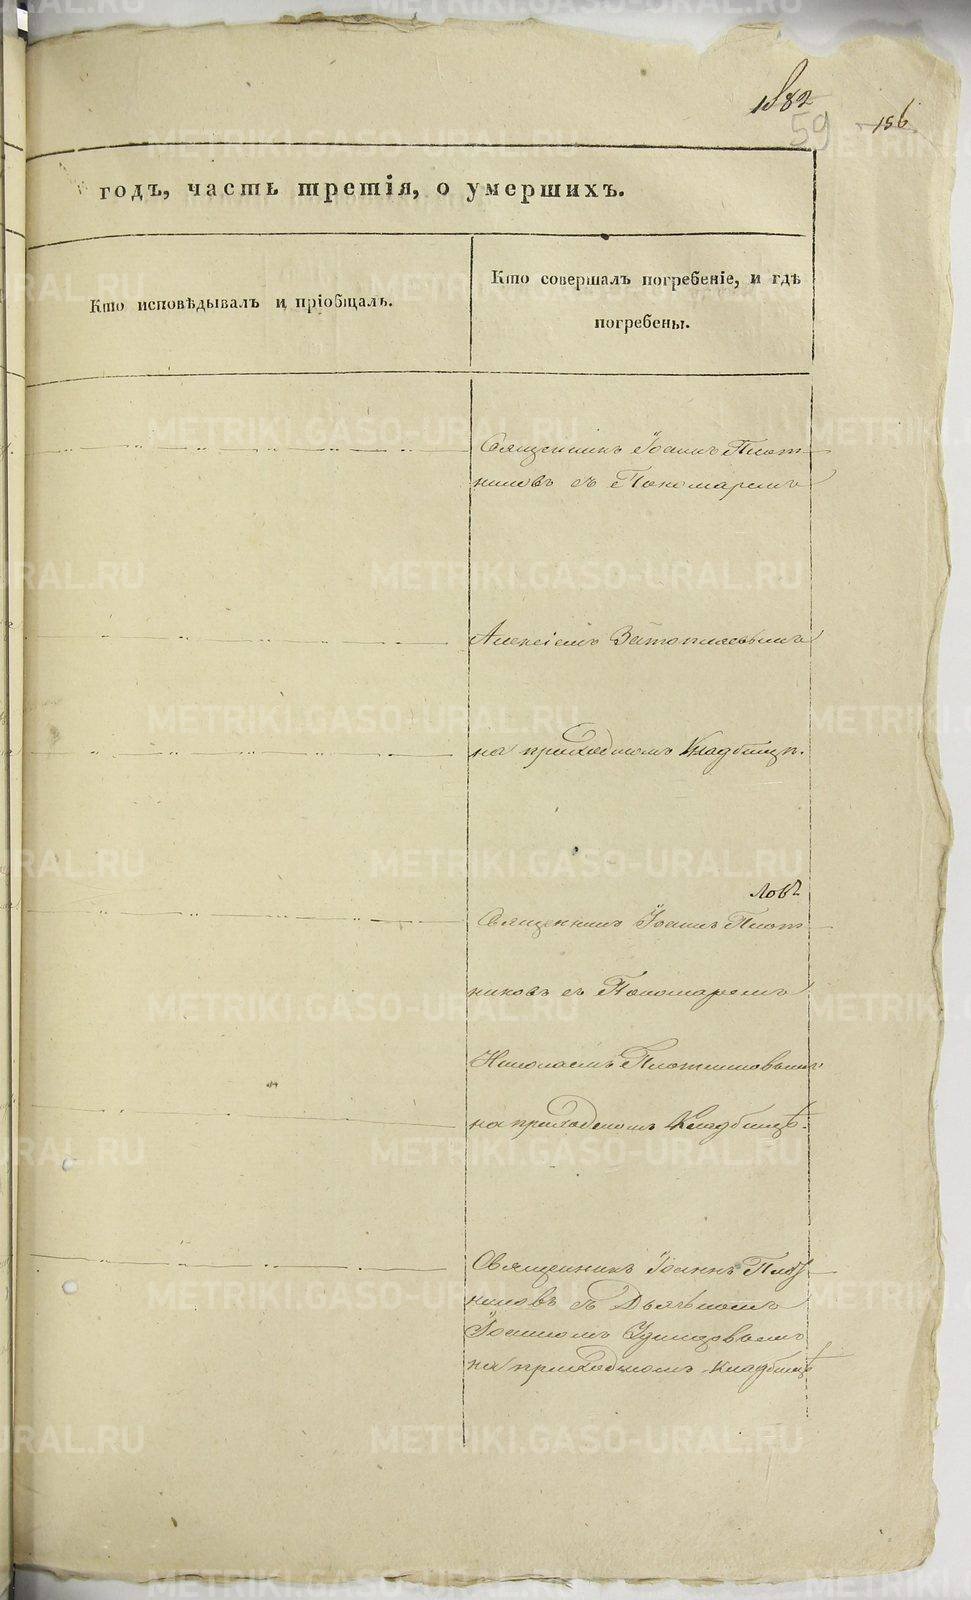 182
59
156
годъ, часть третія, о умершихъ.
Кто исповѣдывалъ и пріобщалъ.
Кто совершалъ погребеніе, и гдѣ
погребены.
Священникъ Іоаннъ Плот-
никовъ съ Пономаремъ
Алексіемъ
на приходскомъ кладбищѣ.
ловъ
Священникъ Іоаннъ Плот-
никовъ съ Пономаремъ
Николаемъ Плотниковымъ
на приходскомъ кладбищѣ.
Священникъ Іоаннъ Плот-
никовъ съ Дьячкомъ
Іоанномъ
на приходскомъ кладбищѣ
METRIKI.GASO-URAL.RU